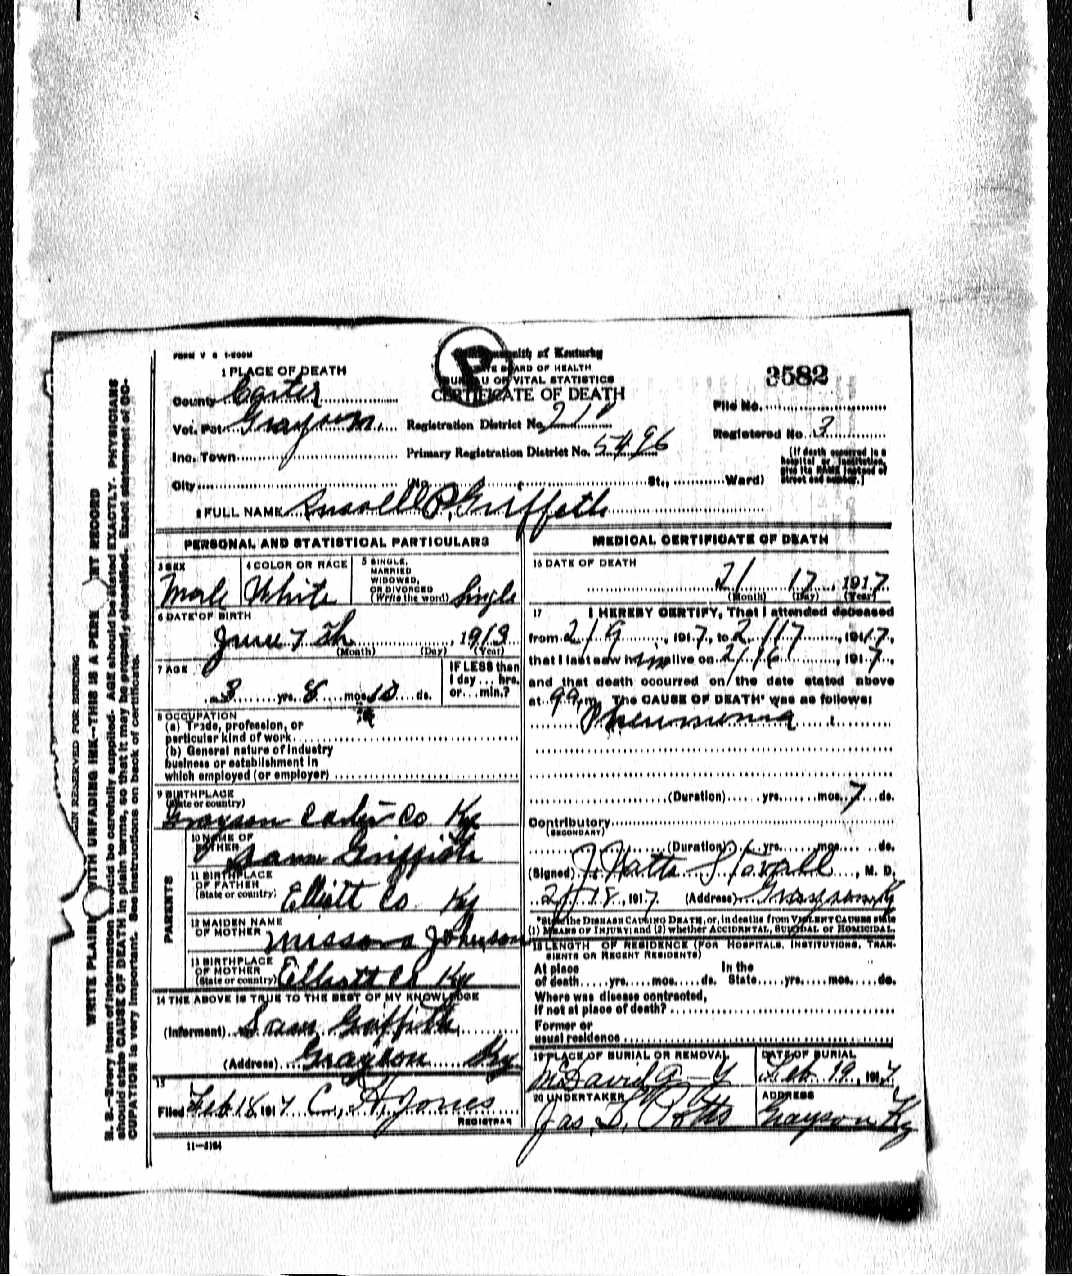 FORM V S 1-500M
Commonwealth of Kentucky
STATE BOARD OF HEALTH
BUREAU OF VITAL STATISTICS
CERTIFICATE OF DEATH
3582
1 PLACE OF DEATH
County Carter
Vot. Pct. Grayson
Inc. Town
City
Registration District No. 210
Primary Registration District No. 5496
(No. St., Ward)
File No.
Registered No. 3
(If death occurred in a
hospital or institution,
give its NAME instead of
street and number.)
2 FULL NAME Russell P. Griffeth
PERSONAL AND STATISTICAL PARTICULARS
3 SEX
Male
4 COLOR OR RACE
White
5 SINGLE,
MARRIED
WIDOWED,
OR DIVORCED
(Write the word) Single
6 DATE OF BIRTH
June 7th, 1913
(Month) (Day) (Year)
7 AGE
3 yrs. 8 mos. 10 ds.
IF LESS than
1 day... hrs.
or... min.?
8 OCCUPATION
(a) Trade, profession, or
particular kind of work
(b) General nature of industry
business or establishment in
which employed (or employer)
9 BIRTHPLACE
(State or country)
Grayson Carter Co Ky
PARENTS
10 NAME OF
FATHER Sam Griffith
11 BIRTHPLACE
OF FATHER
(State or country) Elliott Co. Ky
12 MAIDEN NAME
OF MOTHER Johnson
13 BIRTHPLACE
OF MOTHER
(State or country) Elliott Co Ky
14 THE ABOVE IS TRUE TO THE BEST OF MY KNOWLEDGE
(Informant) Sam Griffith
(Address) Grayson Ky
15
Filed Feb 18 1917 C. H. Jones
REGISTRAR
11-3184
MEDICAL CERTIFICATE OF DEATH
16 DATE OF DEATH
2/ 17, 1917
(Month) (Day) (Year)
17 I HEREBY CERTIFY, That I attended deceased
from 2/9, 1917, to 2/17, 1917,
that I last saw him alive on 2/16, 1917,
and that death occurred on the date stated above
at m. The CAUSE OF DEATH* was as follows:
Pneumonia
(Duration) yrs. mos. 7 ds.
Contributory
(SECONDARY)
(Duration) yrs. mos. ds.
(Signed) J. Watts Stovall, M. D.
2/18, 1917 (Address) Grayson Ky
*State the DISEASE CAUSING DEATH, or, in deaths from VIOLENT CAUSES state
(1) MEANS OF INJURY; and (2) whether ACCIDENTAL, SUICIDAL or HOMICIDAL.
18 LENGTH OF RESIDENCE (FOR HOSPITALS, INSTITUTIONS, TRAN-
SIENTS OR RECENT RESIDENTS)
At place In the
of death yrs. mos. ds. State yrs. mos. ds.
Where was disease contracted,
if not at place of death?
Former or
usual residence
19 PLACE OF BURIAL OR REMOVAL
McDavid
DATE OF BURIAL
Feb. 19, 1917
20 UNDERTAKER
Jas. D. Potts
ADDRESS
Grayson Ky
MARGIN RESERVED FOR BINDING
WRITE PLAINLY, WITH UNFADING INK—THIS IS A PERMANENT RECORD
N. B.—Every item of information should be carefully supplied. AGE should be stated EXACTLY. PHYSICIANS
should state CAUSE OF DEATH in plain terms, so that it may be properly classified. Exact statement of OC-
CUPATION is very important. See instructions on back of certificate.